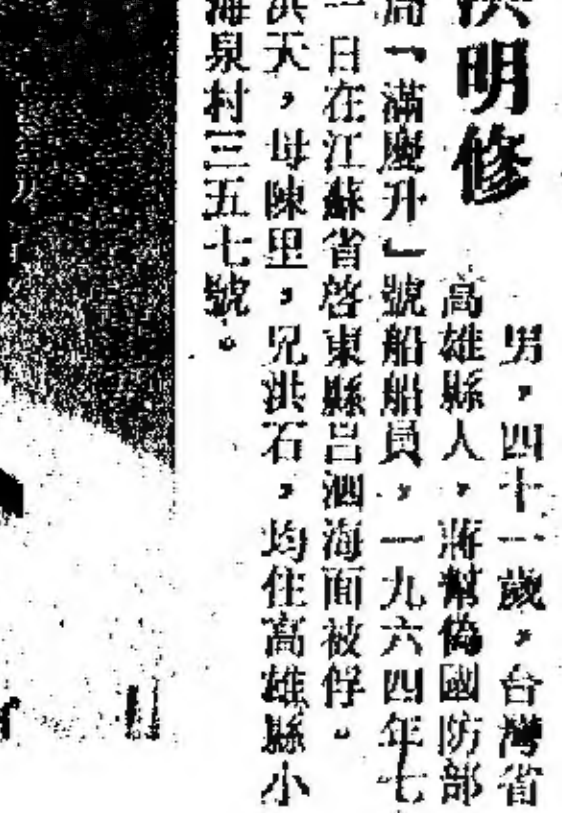 洪明修
男，四十一歲，台灣省
高雄縣人，蔣幫偽國防部
局「滿慶升」號船船員，一九六四年七
一日在江蘇省啓東縣呂泗海面被俘。
洪天，母陳里，兄洪石，均住高雄縣小
海泉村三五七號。